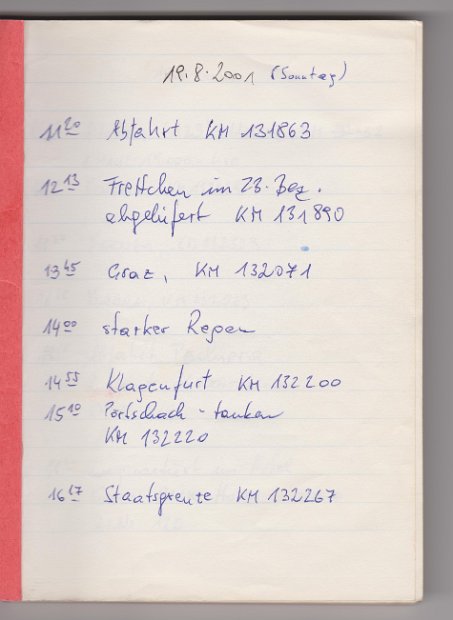 19.8.2001 (Sonntag)
11 20 Abfahrt KM 131863
12 13 Frettchen im 23. Bez.
abgeliefert KM 131890
13 45 Graz, KM 132071
14 00 starker Regen
14 55 Klagenfurt KM 132200
15 10 Pörtschach - tanken
KM 132220
16 17 Staatsgrenze KM 132267